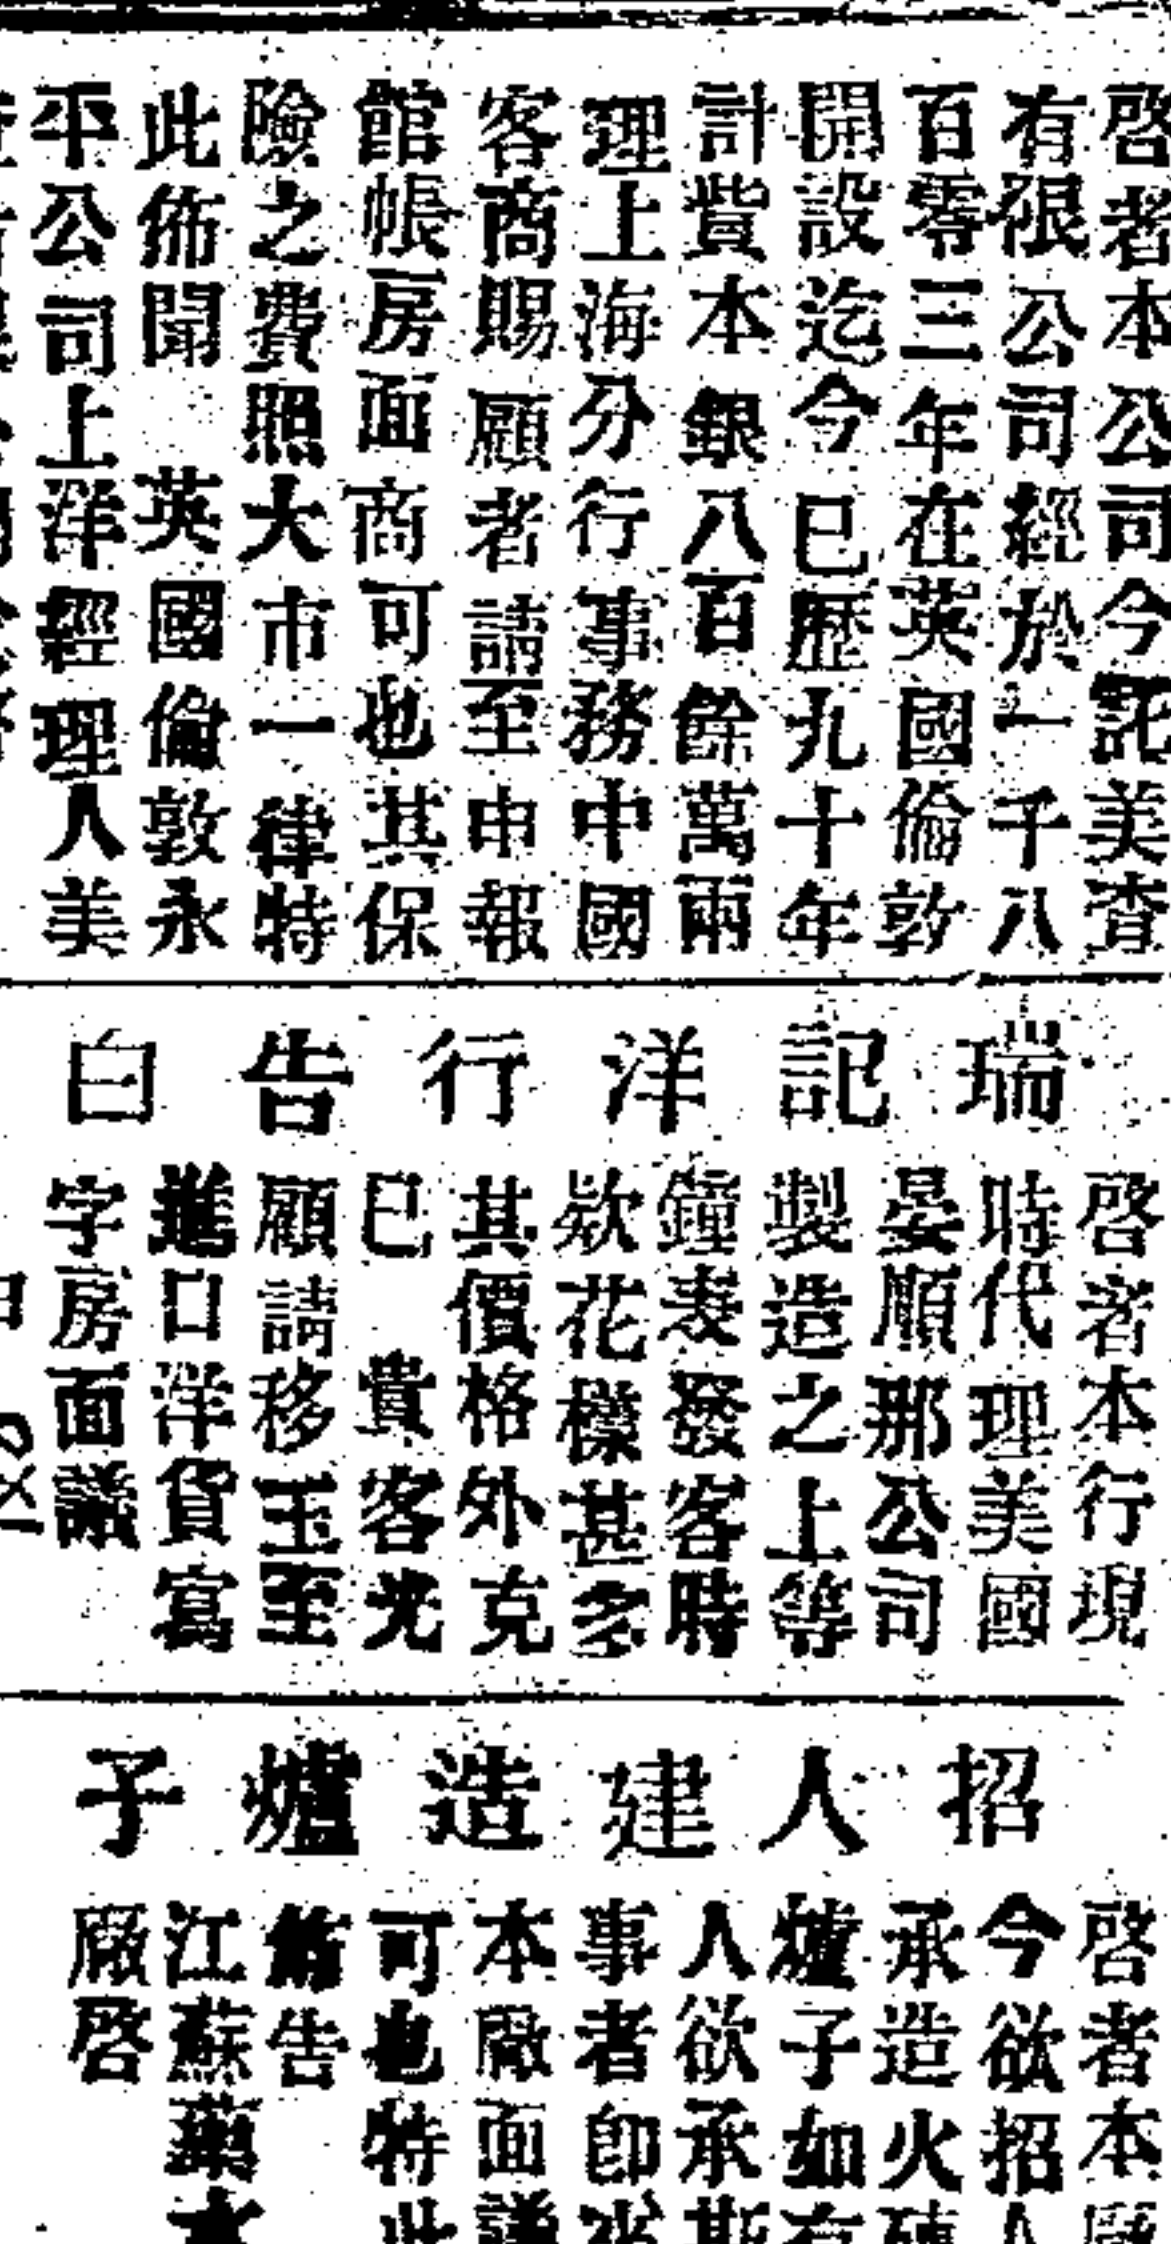 啓者本公司今託美查
有限公司經於一千八
百零三年在英國倫敦
開設迄今已歷九十年
計貲本銀八百餘萬兩
理上海分行事務中國
客商賜顧者請至申報
館帳房面商可也其保
險之費照大市一律特
此佈聞 英國倫敦永
平公司上洋經理人美
瑞記洋行告白
啓者本行現
時代理美國
晏順那公司
製造之上等
鐘表發客時
欵花樣甚多
其價格外克
已 貴客光
顧請移玉至
進口洋貨寫
字房面議
招人建造爐子
啓者本廠
今欲招人
承造火磚
爐子如有
人欲承斯
事者卽來
本廠面議
可也特此
佈告
江蘇藥水
廠啓